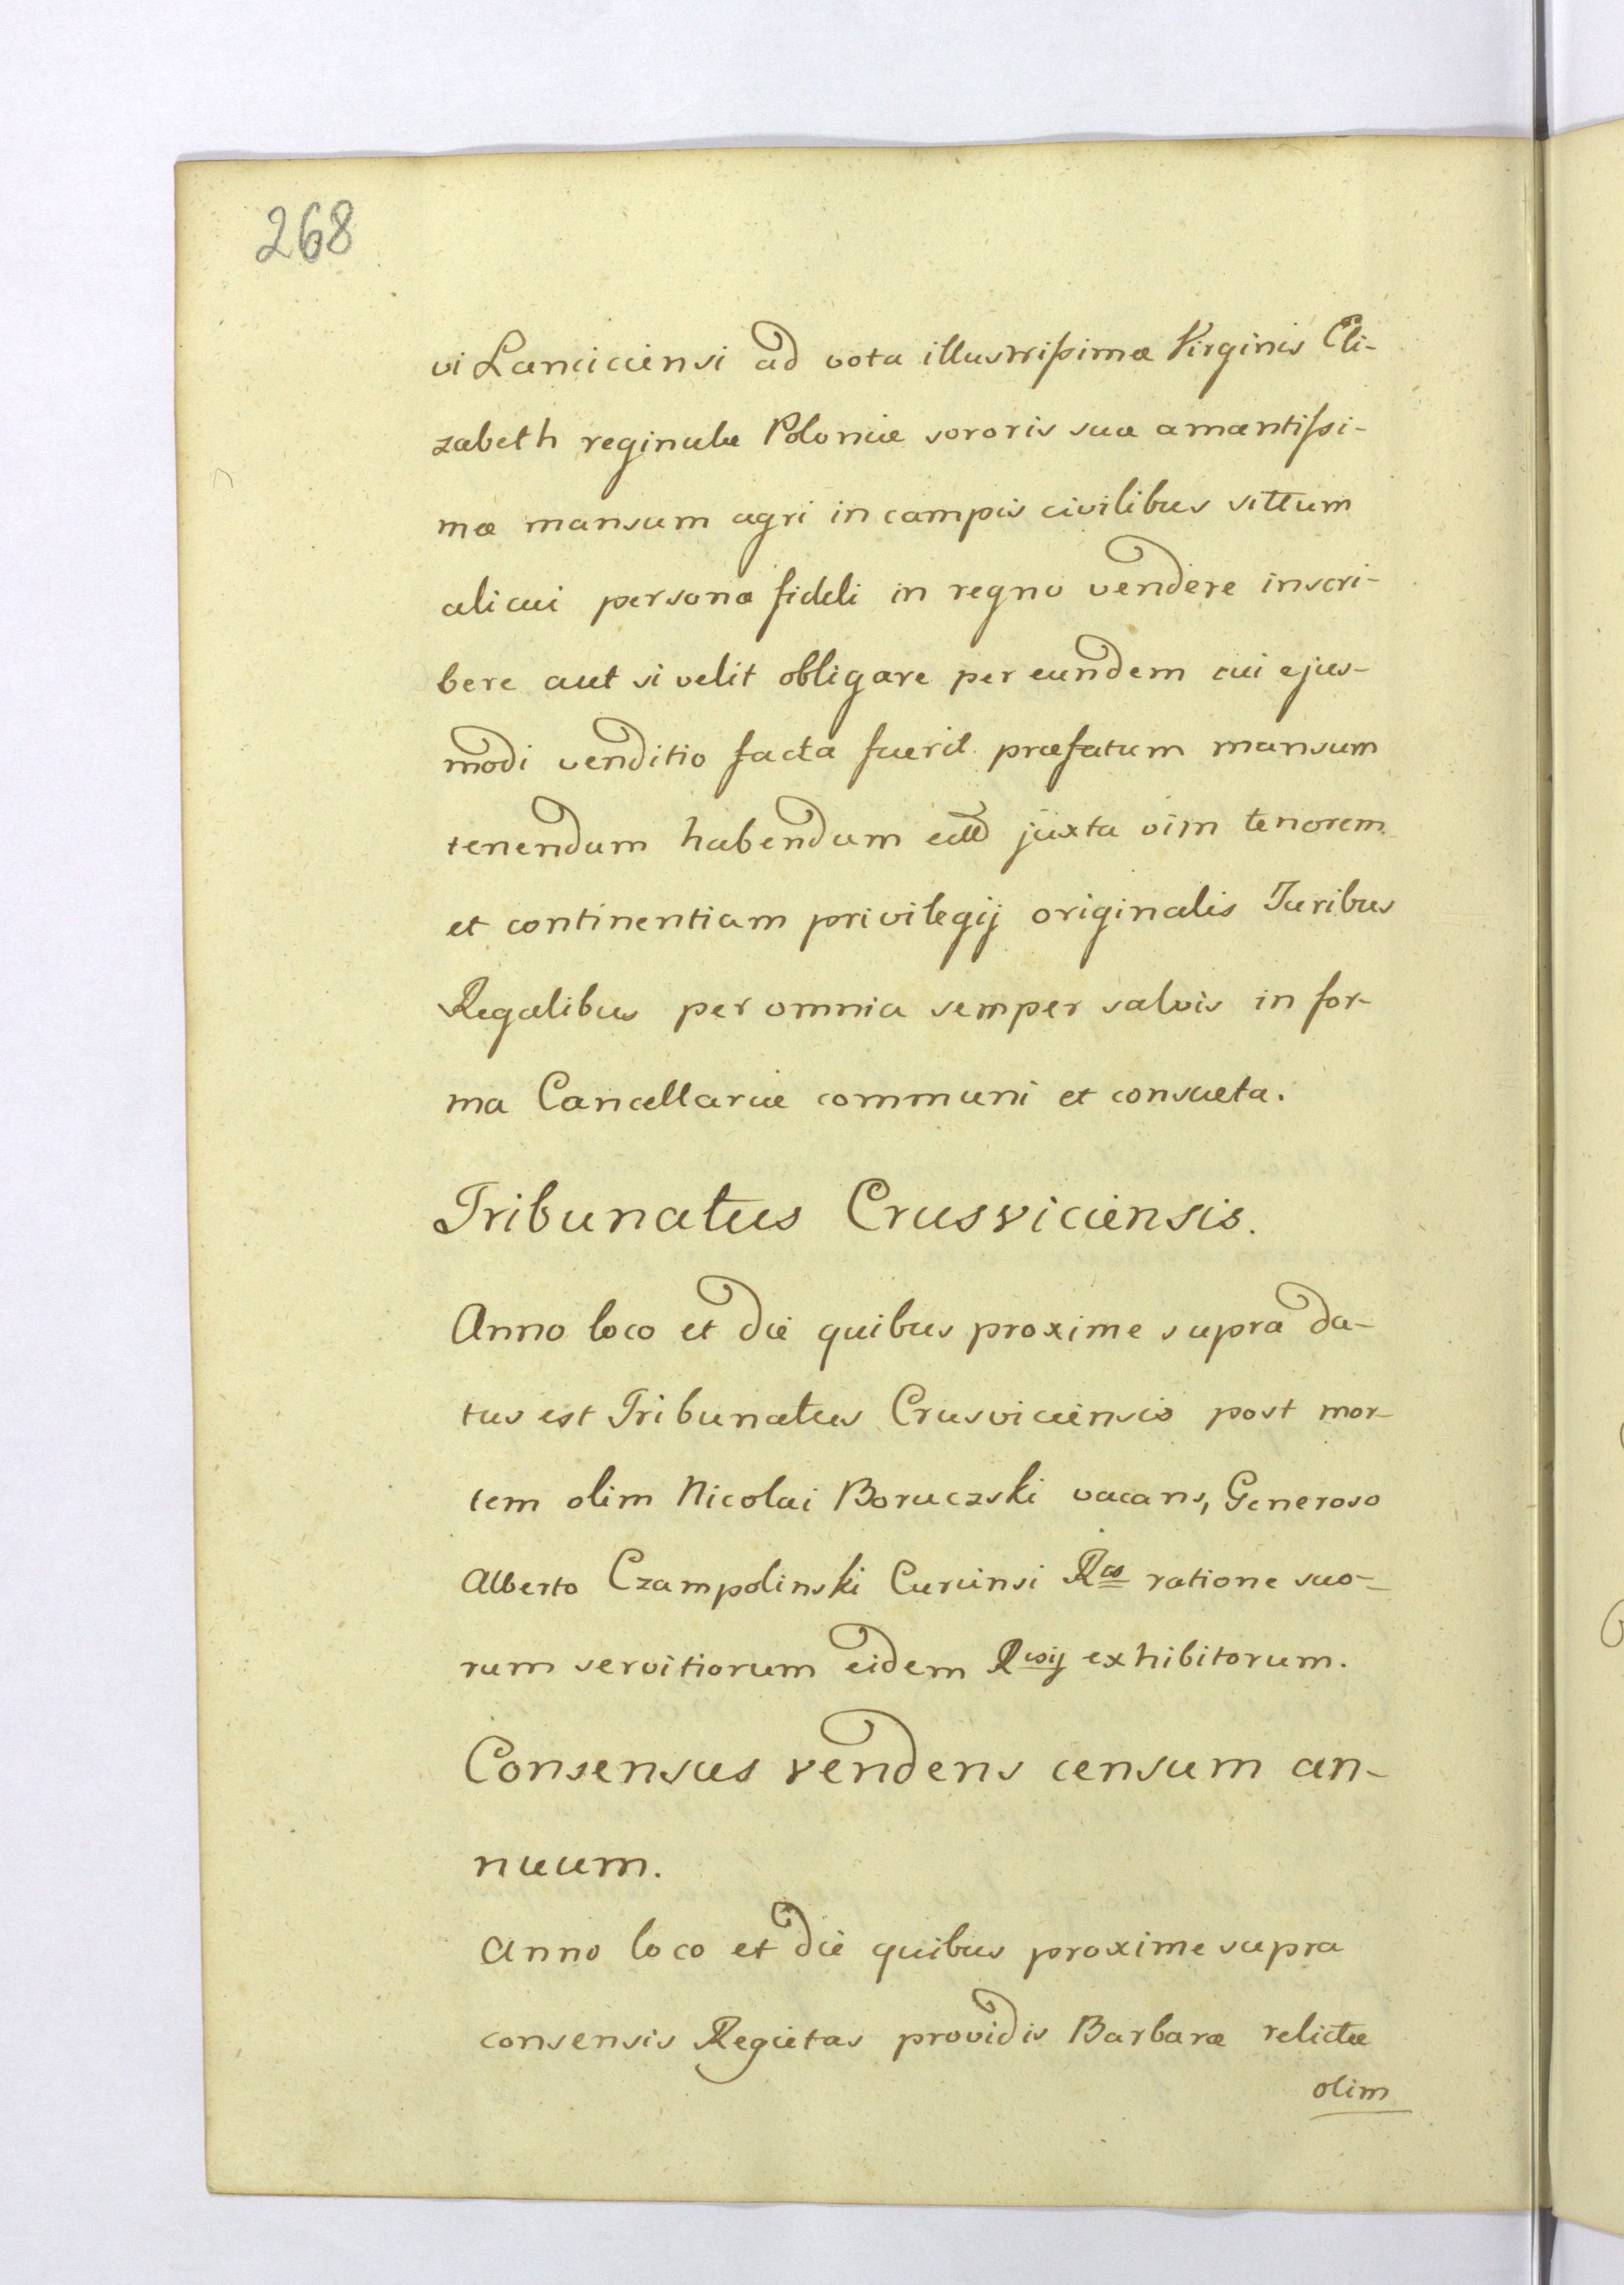 268
vi Lanciciensi ad vota illustrissimæ Virginis Eli-
zabeth reginulæ Poloniæ sororis suæ amantissi-
mæ mansum agri in campis civilibus sittum
alicui personæ fideli in regno vendere inscri-
bere aut si velit obligare per eundem cui ejus-
modi venditio facta fuerit præfatum mansum
tenendum habendum juxta vim tenorem
et continentiam privilegij originalis Juribus
Regalibus per omnia semper salvis in for-
ma Cancellariæ communi et consueta.
Tribunatus Crusviciensis.
Anno loco et die quibus proxime supra da-
tus est Tribunatus Crusviciensis post mor-
tem olim Nicolai Boruczski vacans, Generoso
Alberto Czampolinski Curiensi Rcs ratione suo-
rum servitiorum eidem exhibitorum.
Consensus vendens censum an-
nuum.
Anno loco et die quibus proxime supra
consensis Regietas providis Barbaræ relictæ
olim